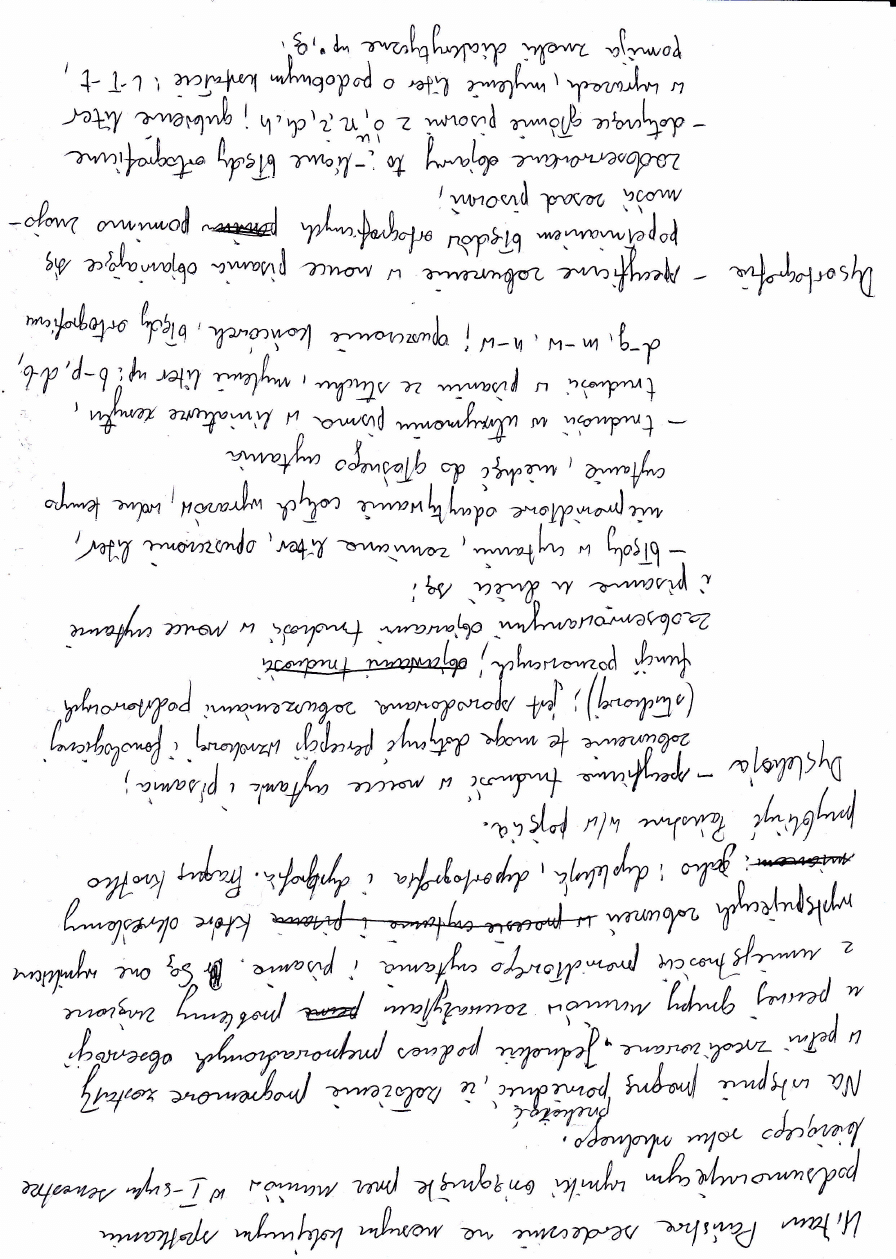 Witam Państwa serdecznie na naszym kolejnym spotkaniu
podsumowującym wyniki osiągnięte przez uczniów w I-szym semestrze
bieżącego roku szkolnego.
przekazać
Na wstępie pragnę powiedzieć, że założenia programowe zostały
w pełni zrealizowane. Jednakże podczas przeprowadzonych obserwacji
u pewnej grupy uczniów zauważyłam problemy związane
z umiejętnością prawidłowego czytania i pisania. Są one wynikiem
występujących zaburzeń w procesie czytania i pisania które określamy
jako: dysleksja, dysortografia i dysgrafia. Pragnę krótko
przybliżyć Państwu w/w pojęcia.
Dysleksja – specyficzne trudności w nauce czytania i pisania;
zaburzenia te mogą dotyczyć percepcji wzrokowej i fonologicznej
(słuchowej); jest spowodowana zaburzeniami podstawowych
funkcji poznawczych; objawami trudności
Zaobserwowanymi objawami trudności w nauce czytania
i pisania u dzieci są:
– błędy w czytaniu, zamiana liter, opuszczanie liter,
nieprawidłowe odczytywanie całych wyrazów, wolne tempo
czytania, niechęć do głośnego czytania
– trudności w utrzymaniu pisma w liniaturze zeszytu,
trudności w pisaniu ze słuchu, mylenie liter np: b-p, d-b,
d-g, m-w, n-w; opuszczanie końcówek, błędy ortograficzne
Dysortografia – specyficzne zaburzenie w nauce pisania objawiające się
popełnianiem błędów ortograficznych pomimo znajo-
mości zasad pisowni;
zaobserwowane objawy to: – liczne błędy ortograficzne
– dotyczące głównie pisowni z ó, u, rz, ż, ch, h; gubienie liter
w wyrazach, mylenie liter o podobnym kształcie: l-ł-t,
pomija znaki diakrytyczne np. ę.